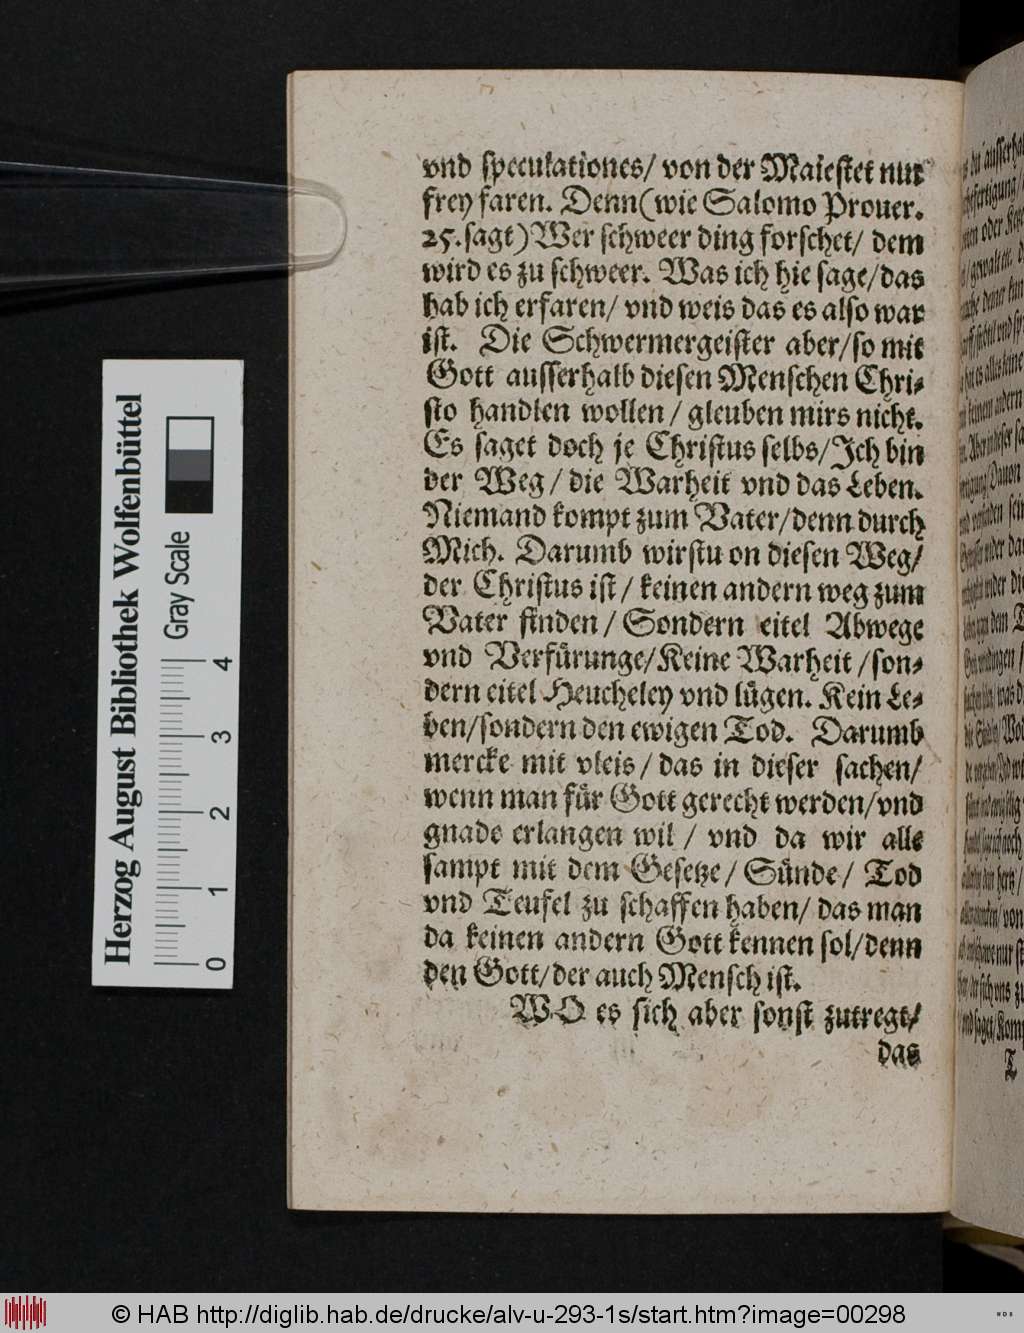 vnd speculationes/ von der Maiestet nur
frey faren. Denn (wie Salomo Prouer.
25. sagt) Wer schweer ding forschet/ dem
wird es zu schweer. Was ich hie sage/ das
hab ich erfaren/ vnd weis das es also war
ist. Die Schwermergeister aber/ so mit
Gott ausserhalb diesen Menschen Chri-
sto handlen wollen/ gleuben mirs nicht.
Es saget doch je Christus selbs/ Ich bin
der Weg/ die Warheit vnd das Leben.
Niemand kompt zum Vater/ denn durch
Mich. Darumb wirstu on diesen Weg/
der Christus ist/ keinen andern weg zum
Vater finden/ Sondern eitel Abwege
vnd Verfürunge/ Keine Warheit/ son-
dern eitel Heucheley vnd lügen. Kein Le-
ben/ sondern den ewigen Tod. Darumb
mercke mit vleis/ das in dieser sachen/
wenn man für Gott gerecht werden/ vnd
gnade erlangen wil/ vnd da wir alle
sampt mit dem Gesetze/ Sünde/ Tod
vnd Teufel zu schaffen haben/ das man
da keinen andern Gott kennen sol/ denn
den Gott/ der auch Mensch ist.
WO es sich aber sonst zutregt/
das
Herzog August Bibliothek Wolfenbüttel
Gray Scale
0 1 2 3 4
© HAB http://diglib.hab.de/drucke/alv-u-293-1s/start.htm?image=00298